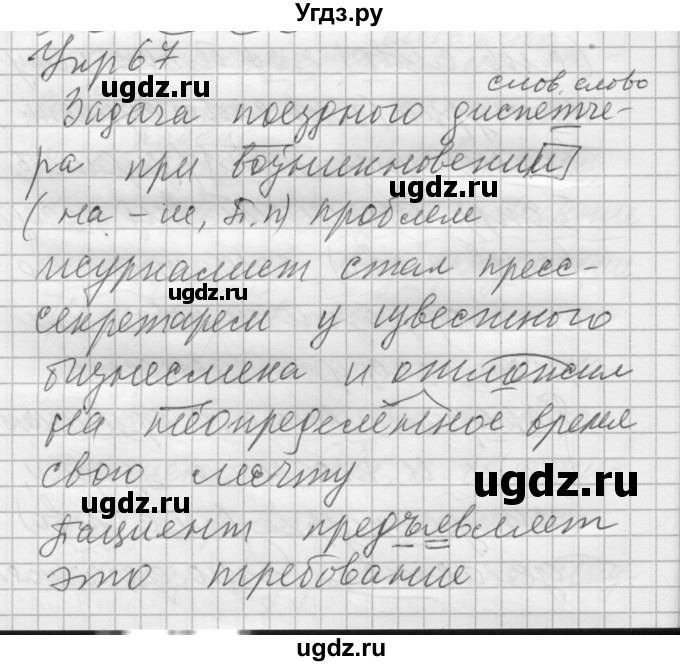 Угдз.ру
Упр 67
слов. слово
Задача поездного диспетче-
ра при возникновении
(на -ие, П.п) проблем
журналист стал пресс-
секретарем у известного
бизнесмена и отложил
на неопределенное время
свою мечту
Пациент предъявляет
это требование
ugdz.ru
ugdz.ru
ugdz.ru
ugdz.ru
ugdz.ru
ugdz.ru